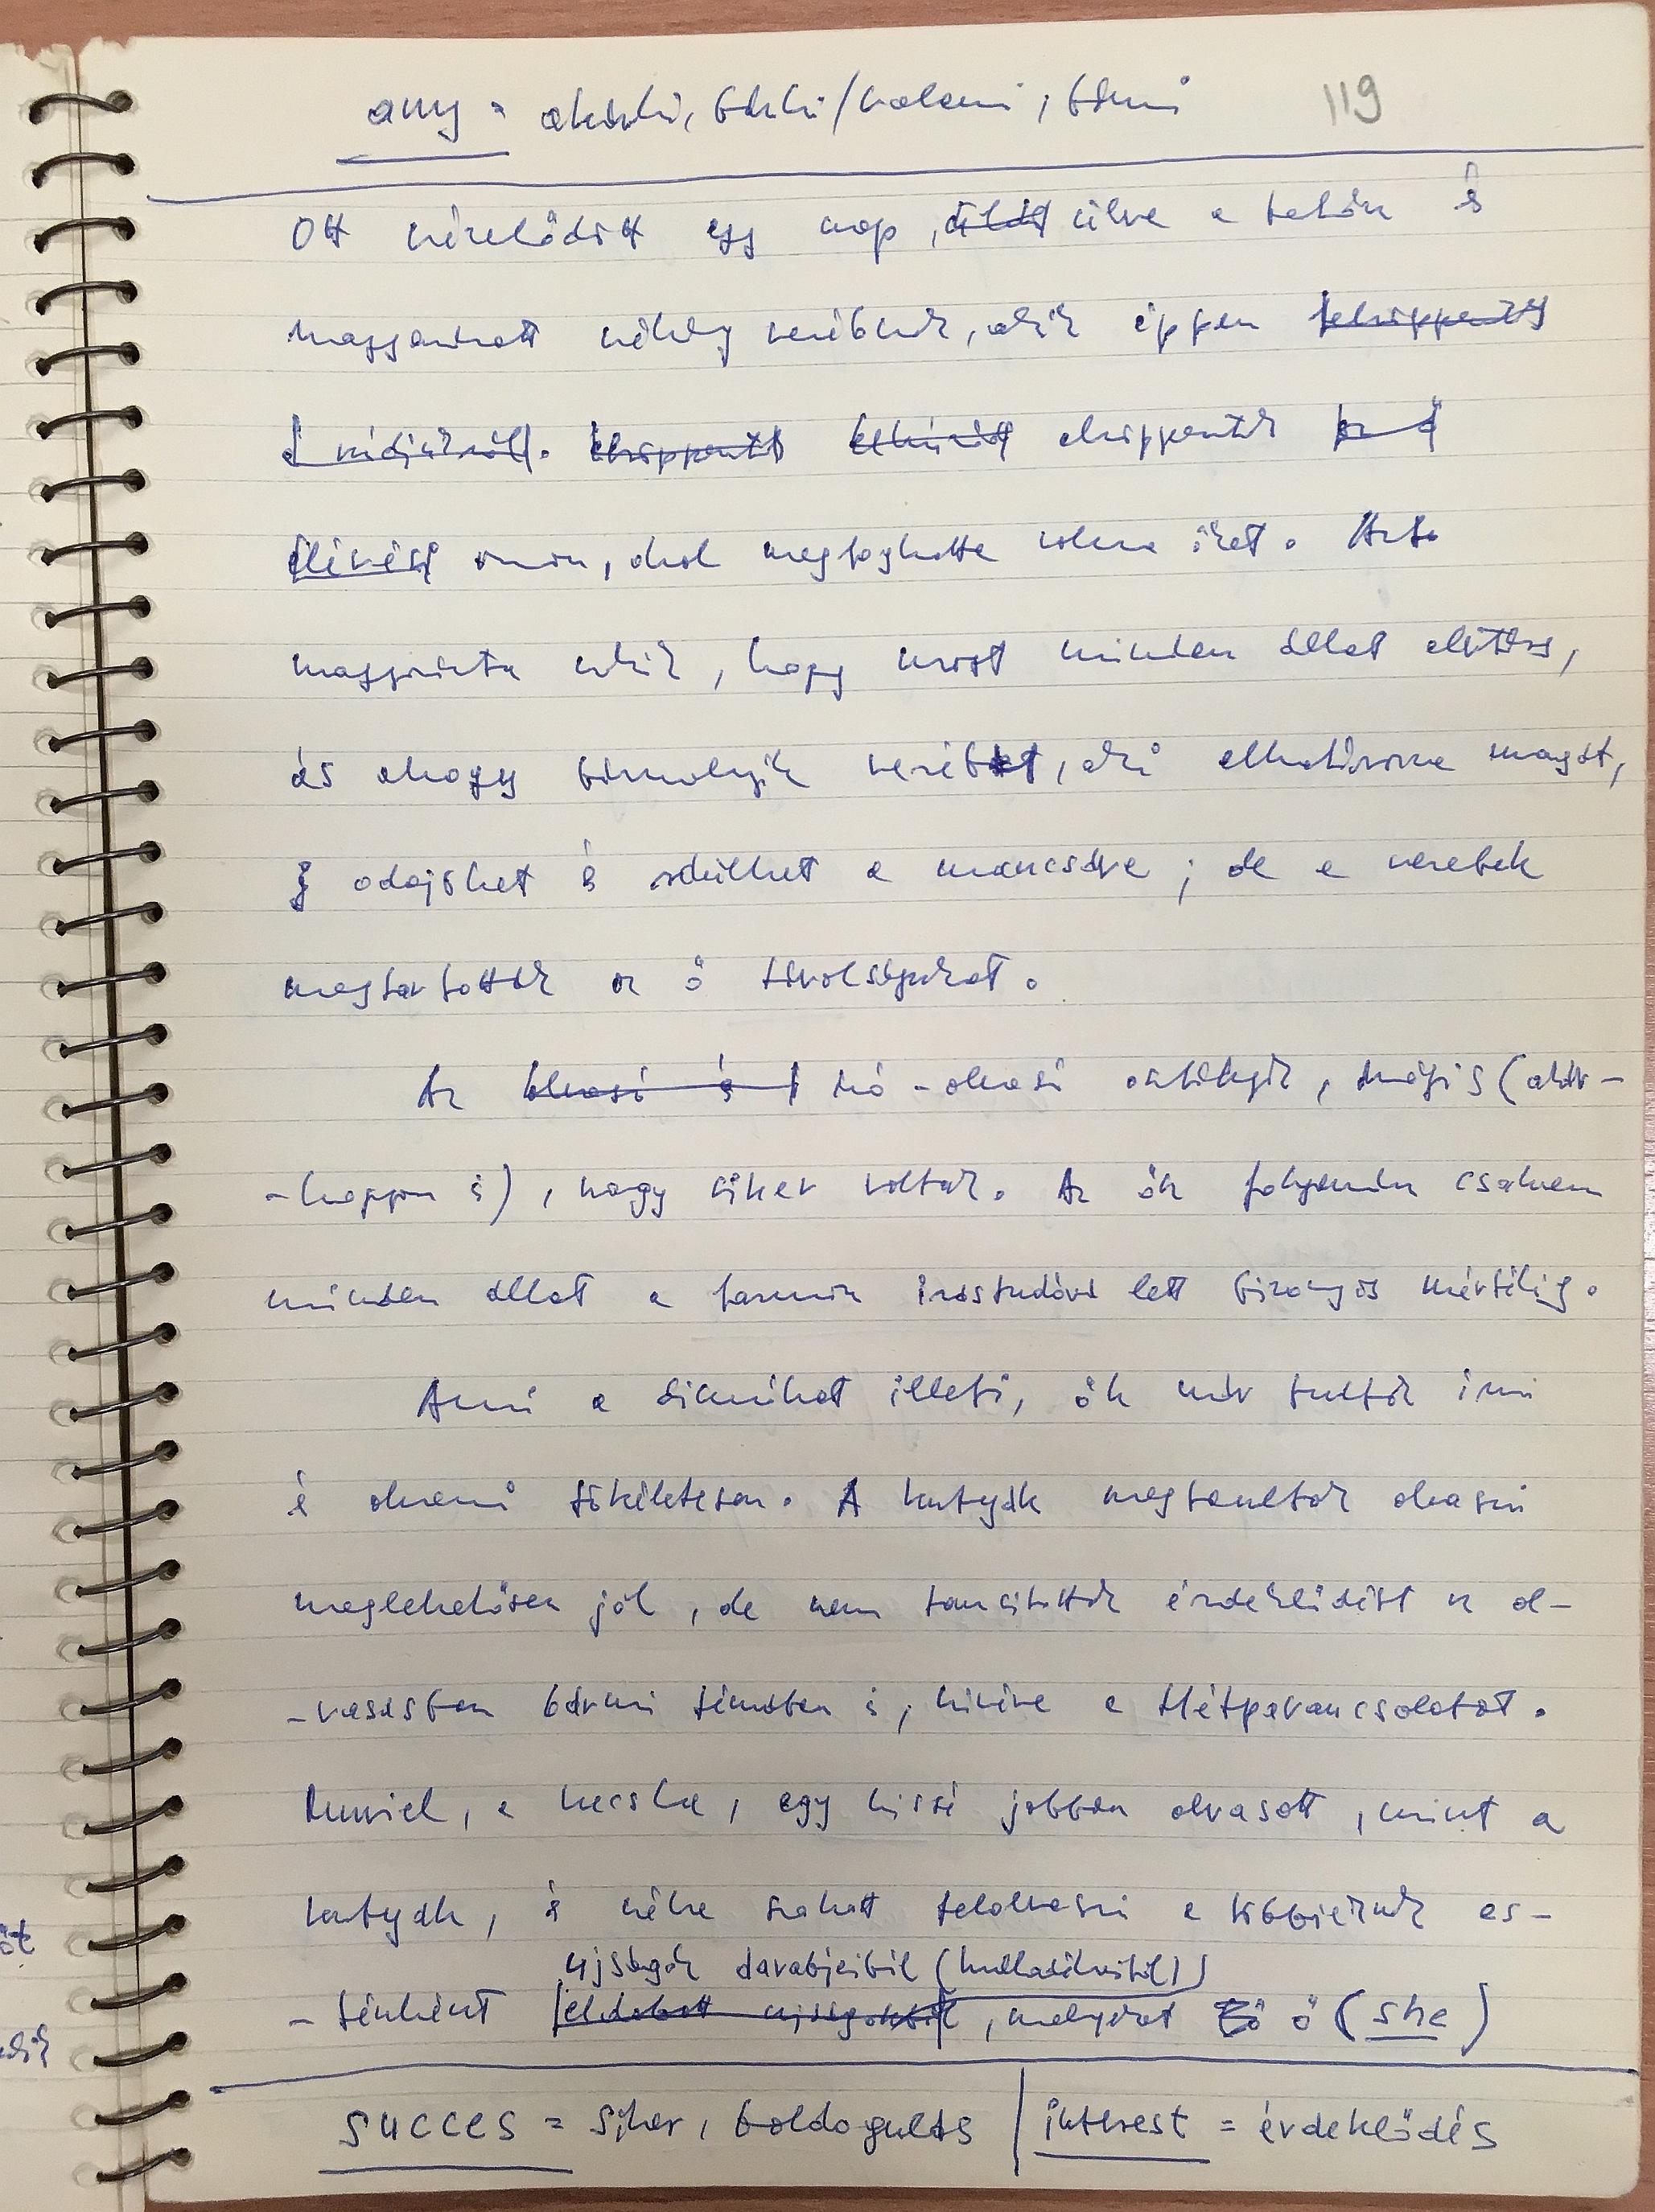 any = akárki, bárki/valami, bármi 119
Ott nézelődött egy nap, ülve a tetőn és
magyarázott néhány verébnek, akik éppen
elrippentek
azon, ahol megfoghatta volna őket. Azt
magyarázta nekik, hogy most minden állat elvtárs,
és ahogy bármelyik veréb, aki elhatározza magát,
odajöhet és ráülhet a mancsára; de a verebek
megtartották az ő távolságukat.
Az író-olvasó osztályok, mégis (akár-
-hogyan is), nagy siker voltak. Az ősz folyamán csaknem
minden állat a farmon írástudóvá lett bizonyos mértékig.
Ami a disznókat illeti, ők már tudtak írni
és olvasni tökéletesen. A kutyák megtanultak olvasni
meglehetősen jól, de nem tanúsítottak érdeklődést az ol-
-vasásban bármi témában is, kivéve a Hétparancsolatot.
Muriel, a kecske, egy kissé jobban olvasott, mint a
kutyák, és néha szokott felolvasni a többieknek es-
újságok darabjaiból (hulladékaiból)
-ténként eldobott újságokból, melyeket ő (she)
succes = siker, boldogulás | interest = érdeklődés